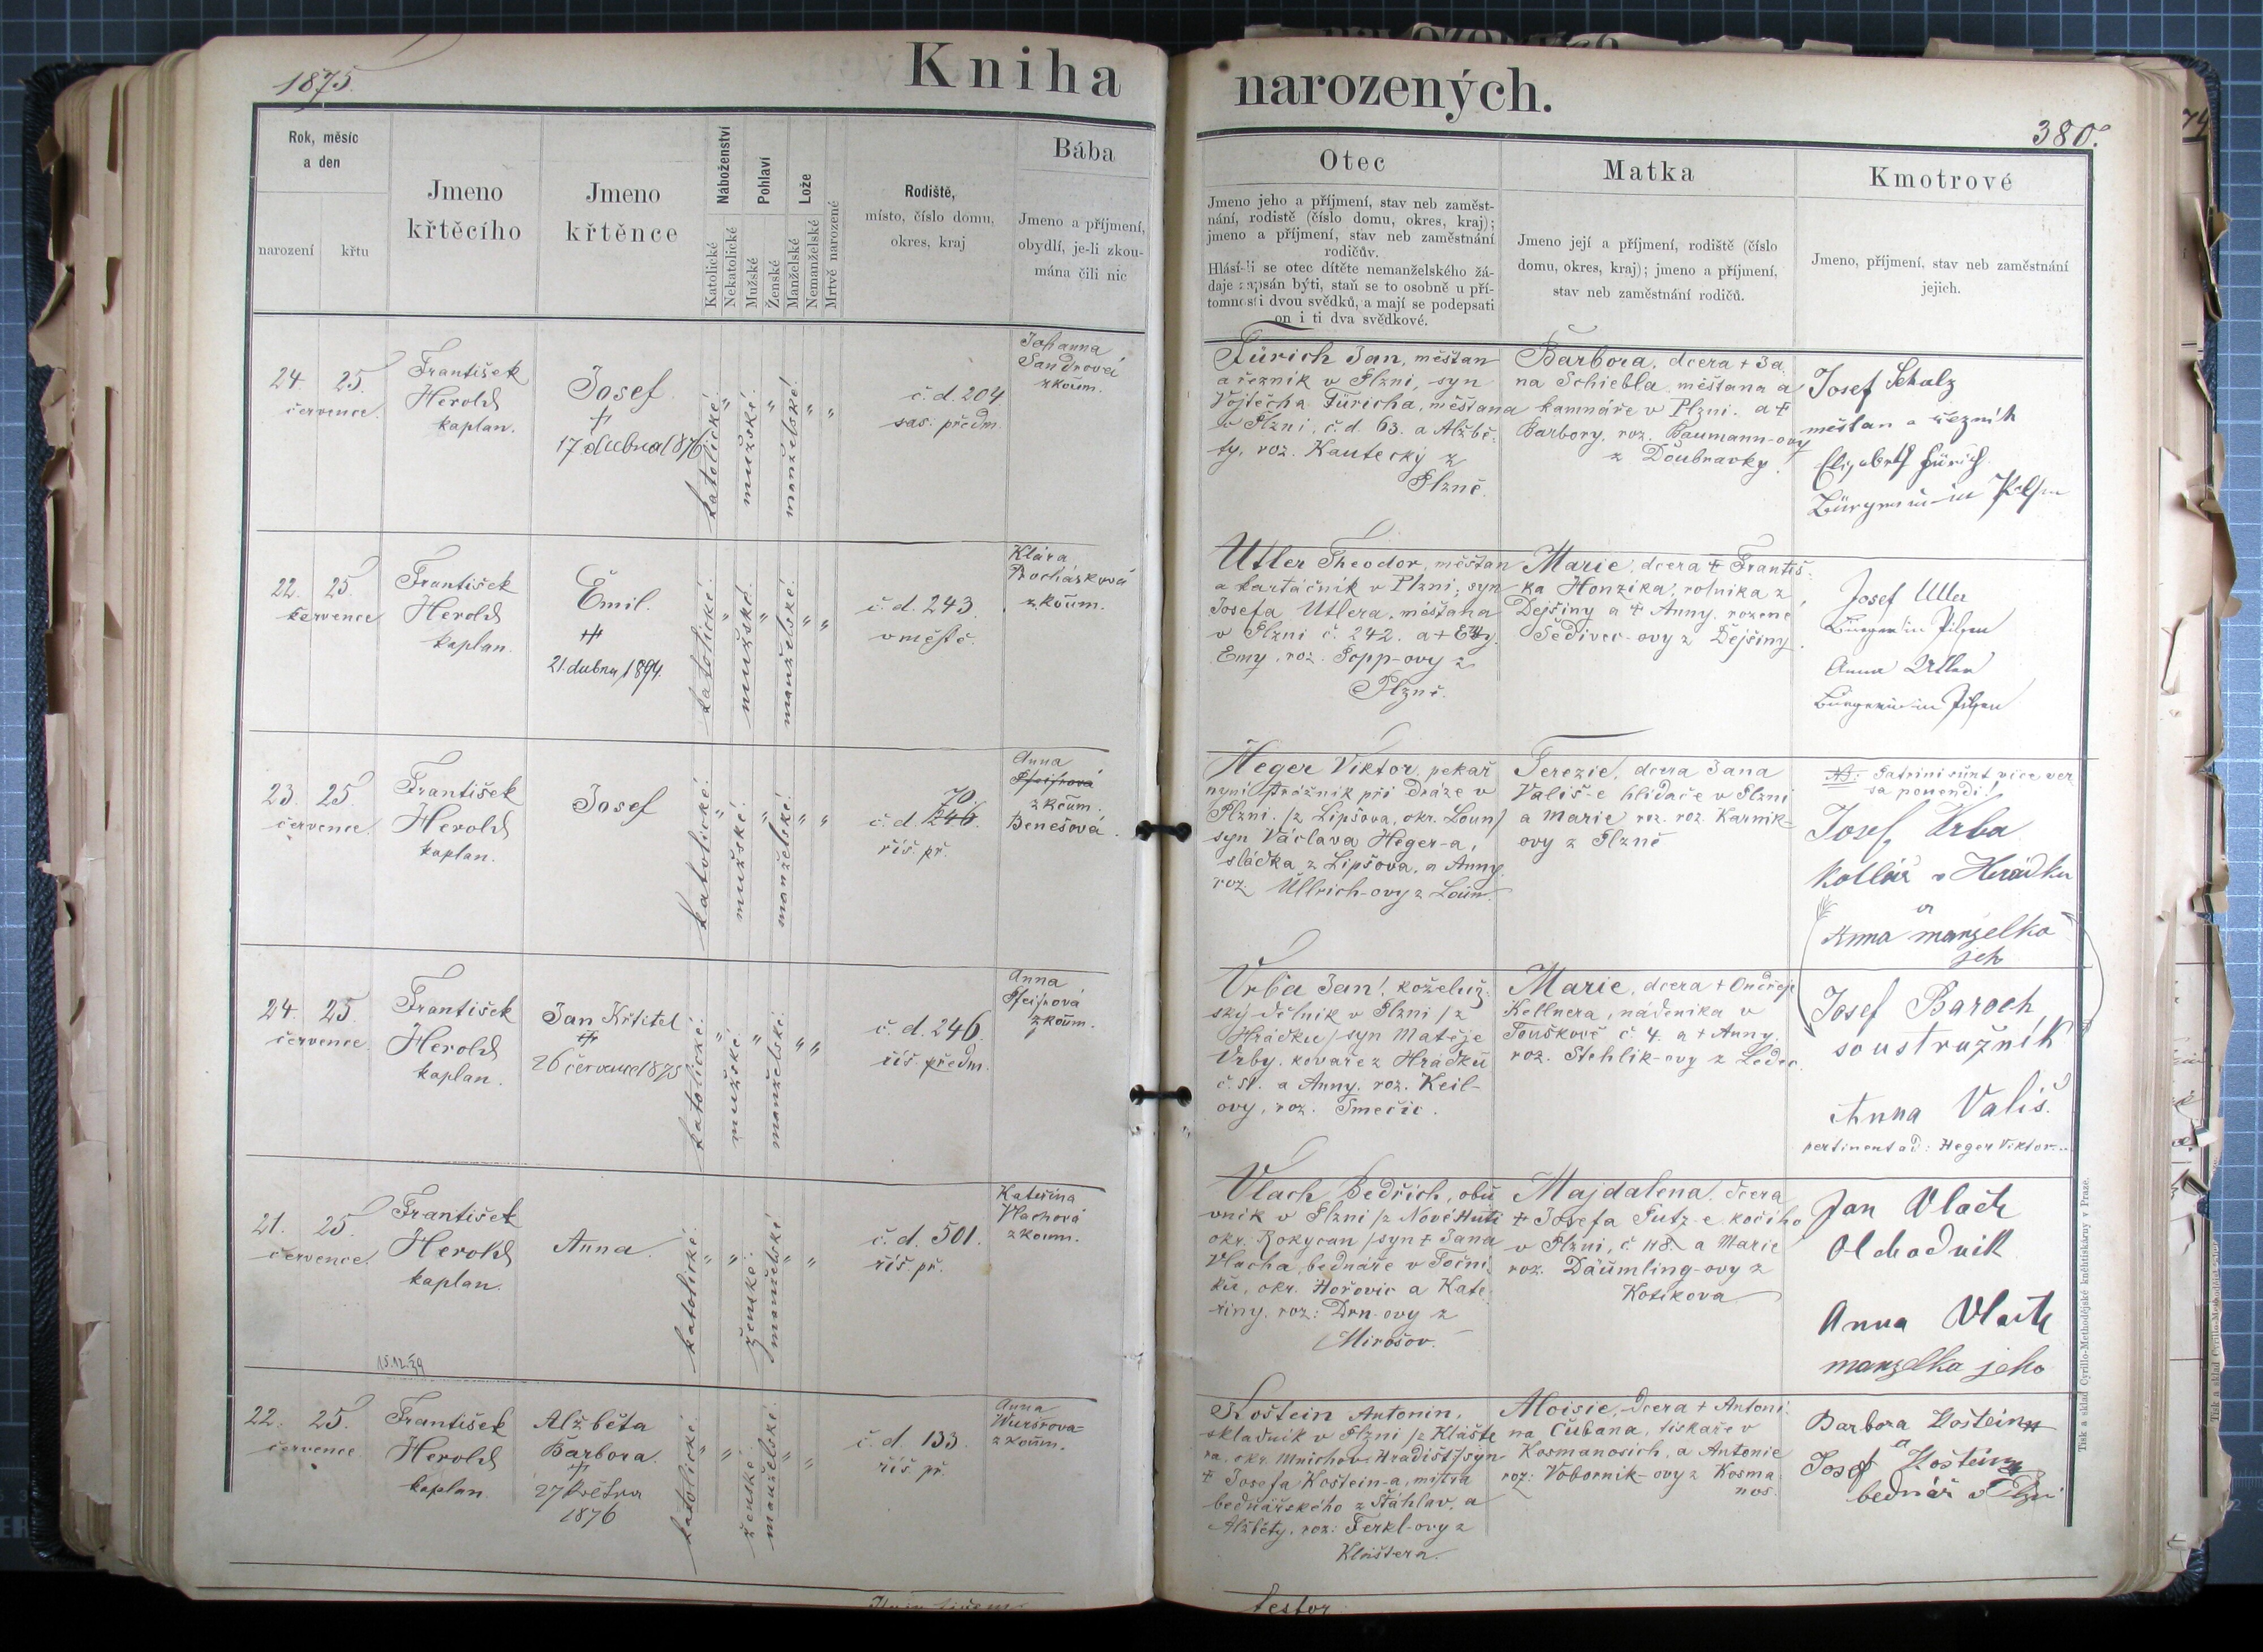 1875.
Kniha
narozených.
380.
Rok, měsíc
a den
narození
křtu
Jmeno
křtěcího
Jmeno
křtěnce
Náboženství
Katolické
Nekatolické
Pohlaví
Mužské
Ženské
Lože
Manželské
Nemanželské
Mrtvě narozené
Rodiště,
místo, číslo domu,
okres, kraj
Bába
Jmeno a příjmení,
obydlí, je-li zkou-
mána čili nic
Otec
Jmeno jeho a příjmení, stav neb zaměst-
nání, rodistě (číslo domu, okres, kraj);
jmeno a příjmení, stav neb zaměstnání
rodičův.
Hlásí-li se otec dítěte nemanželského žá-
daje zapsán býti, staň se to osobně u pří-
tomnosti dvou svědků, a mají se podepsati
on i ti dva svědkové.
Matka
Jmeno její a příjmení, rodiště (číslo
domu, okres, kraj); jmeno a příjmení,
stav neb zaměstnání rodičů.
Kmotrové
Jmeno, příjmení, stav neb zaměstnání
jejich.
24. 25.
července.
František
Herold
kaplan.
Josef
†
17 dubna 1876
katolické.
"
mužské.
"
manželské.
"
"
č. d. 204
sas. předm.
Johanna
Sandrová
zkoum.
Fürich Jan, měšťan
a řezník v Plzni, syn
Vojtěcha Füricha, měšťana
v Plzni, č. d. 63. a Alžbě-
ty, roz. Kautecký z
Plzně.
Barbora, dcera + Ja
na Schiebla, měšťana a
kamnáře v Plzni. a +
Barbory, roz. Baumann-ovy
z Doubravky.
Josef Schalz
měšťan a řezník
Elisabeth Fürich
Bürgerin in Pilsen
22. 25.
července
František
Herold
kaplan.
Emil.
†
21. dubna 1894.
katolické.
"
mužské.
"
manželské.
"
"
č. d. 243
v městě.
Klára
Procházková
zkoum.
Utler Theodor, měšťan
a kartáčník v Plzni, syn
Josefa Utlera, měšťana
v Plzni č. 242. a +
Emy, roz. Popp-ovy z
Plzně.
Marie, dcera + Františ-
ka Honzíka, rolníka z
Dejšiny a + Anny, rozené
Šedivec-ovy z Dejšiny.
Josef Utler
Bürger in Pilsen
Anna Utler
Bürgerin in Pilsen
23. 25.
července.
František
Herold
kaplan.
Josef
katolické.
"
mužské.
"
manželské.
"
"
70.
č. d. 246.
říš. př.
Anna
Pfeifrová
zkoum.
Benešová.
Heger Viktor, pekař
nyní strážník při dráze v
Plzni. /z Lipšova, okr. Loun/
syn Václava Heger-a,
sládka z Lipšova, a Anny,
roz. Üllrich-ovy z Loun.
Terezie, dcera Jana
Vališ-e hlídače v Plzni
a Marie roz. roz. Karnik-
ovy z Plzně
NB: Patrini sunt vice ver
sa ponendi!
Josef Vrba
Kotlář v Hrádku
a
Anna manželka
jeh
24. 25.
července.
František
Herold
kaplan.
Jan Křtitel
†
26 července 1875
katolické.
"
mužské.
"
manželské.
"
"
č. d. 246.
říš. předm.
Anna
Pfeifrová
zkoum.
Vrba Jan, koželuž-
ský dělník v Plzni /z
Hrádku/ syn Matěje
Vrby, kovaře z Hrádku
č. 51. a Anny, roz. Keil-
ovy, roz. Smečic.
Marie, dcera + Ondřeje
Kellnera, nádeníka v
Touškově č. 4. a + Anny,
roz. Stehlík-ovy z Ledec.
Josef Baroch
soustružník
Anna Vališ.
pertinent ad: Heger Viktor...
21. 25.
července.
František
Herold
kaplan.
Anna.
katolické.
"
"
ženské.
manželské
"
č. d. 501.
říš. př.
Kateřina
Vlachová
zkoum.
Vlach Bedřich, obu
vník v Plzni /z Nové Huti
okr. Rokycan/ syn + Jana
Vlacha, bednáře v Toční-
ku, okr. Hořovic a Kate-
řiny, roz: Drn-ovy z
Mirošov.
Majdalena, dcera
+ Josefa Putz-e kočího
v Plzni, č. 118. a Marie
roz. Däumling-ovy z
Kotíkova
Jan Vlach
Obchodník
Anna Vlach
manželka jeho
15.12.39
22. 25.
července.
František
Herold
kaplan.
Alžběta
Barbora.
†
27 května
1876
katolické.
"
"
ženské.
manželské.
"
"
č. d. 133.
říš. př.
Anna
Wursrová
zkoum.
Koštein Antonín,
skladník v Plzni /z Klášte
ra, okr. Mnichov. Hradiště/ syn
+ Josefa Koštein-a, mistra
bednářského z Štáhlav, a
Alžběty, roz: Ferkl-ovy z
Kláštera.
Aloisie, dcera + Antoni-
na Čubana, tiskaře v
Kosmanosích, a Antonie
roz: Voborník-ovy z Kosma
nos.
Barbora Koštein
a
Josef Koštein
bednář v Plzni
Tisk a sklad Cyrillo-Methodějské knihtiskárny v Praze.